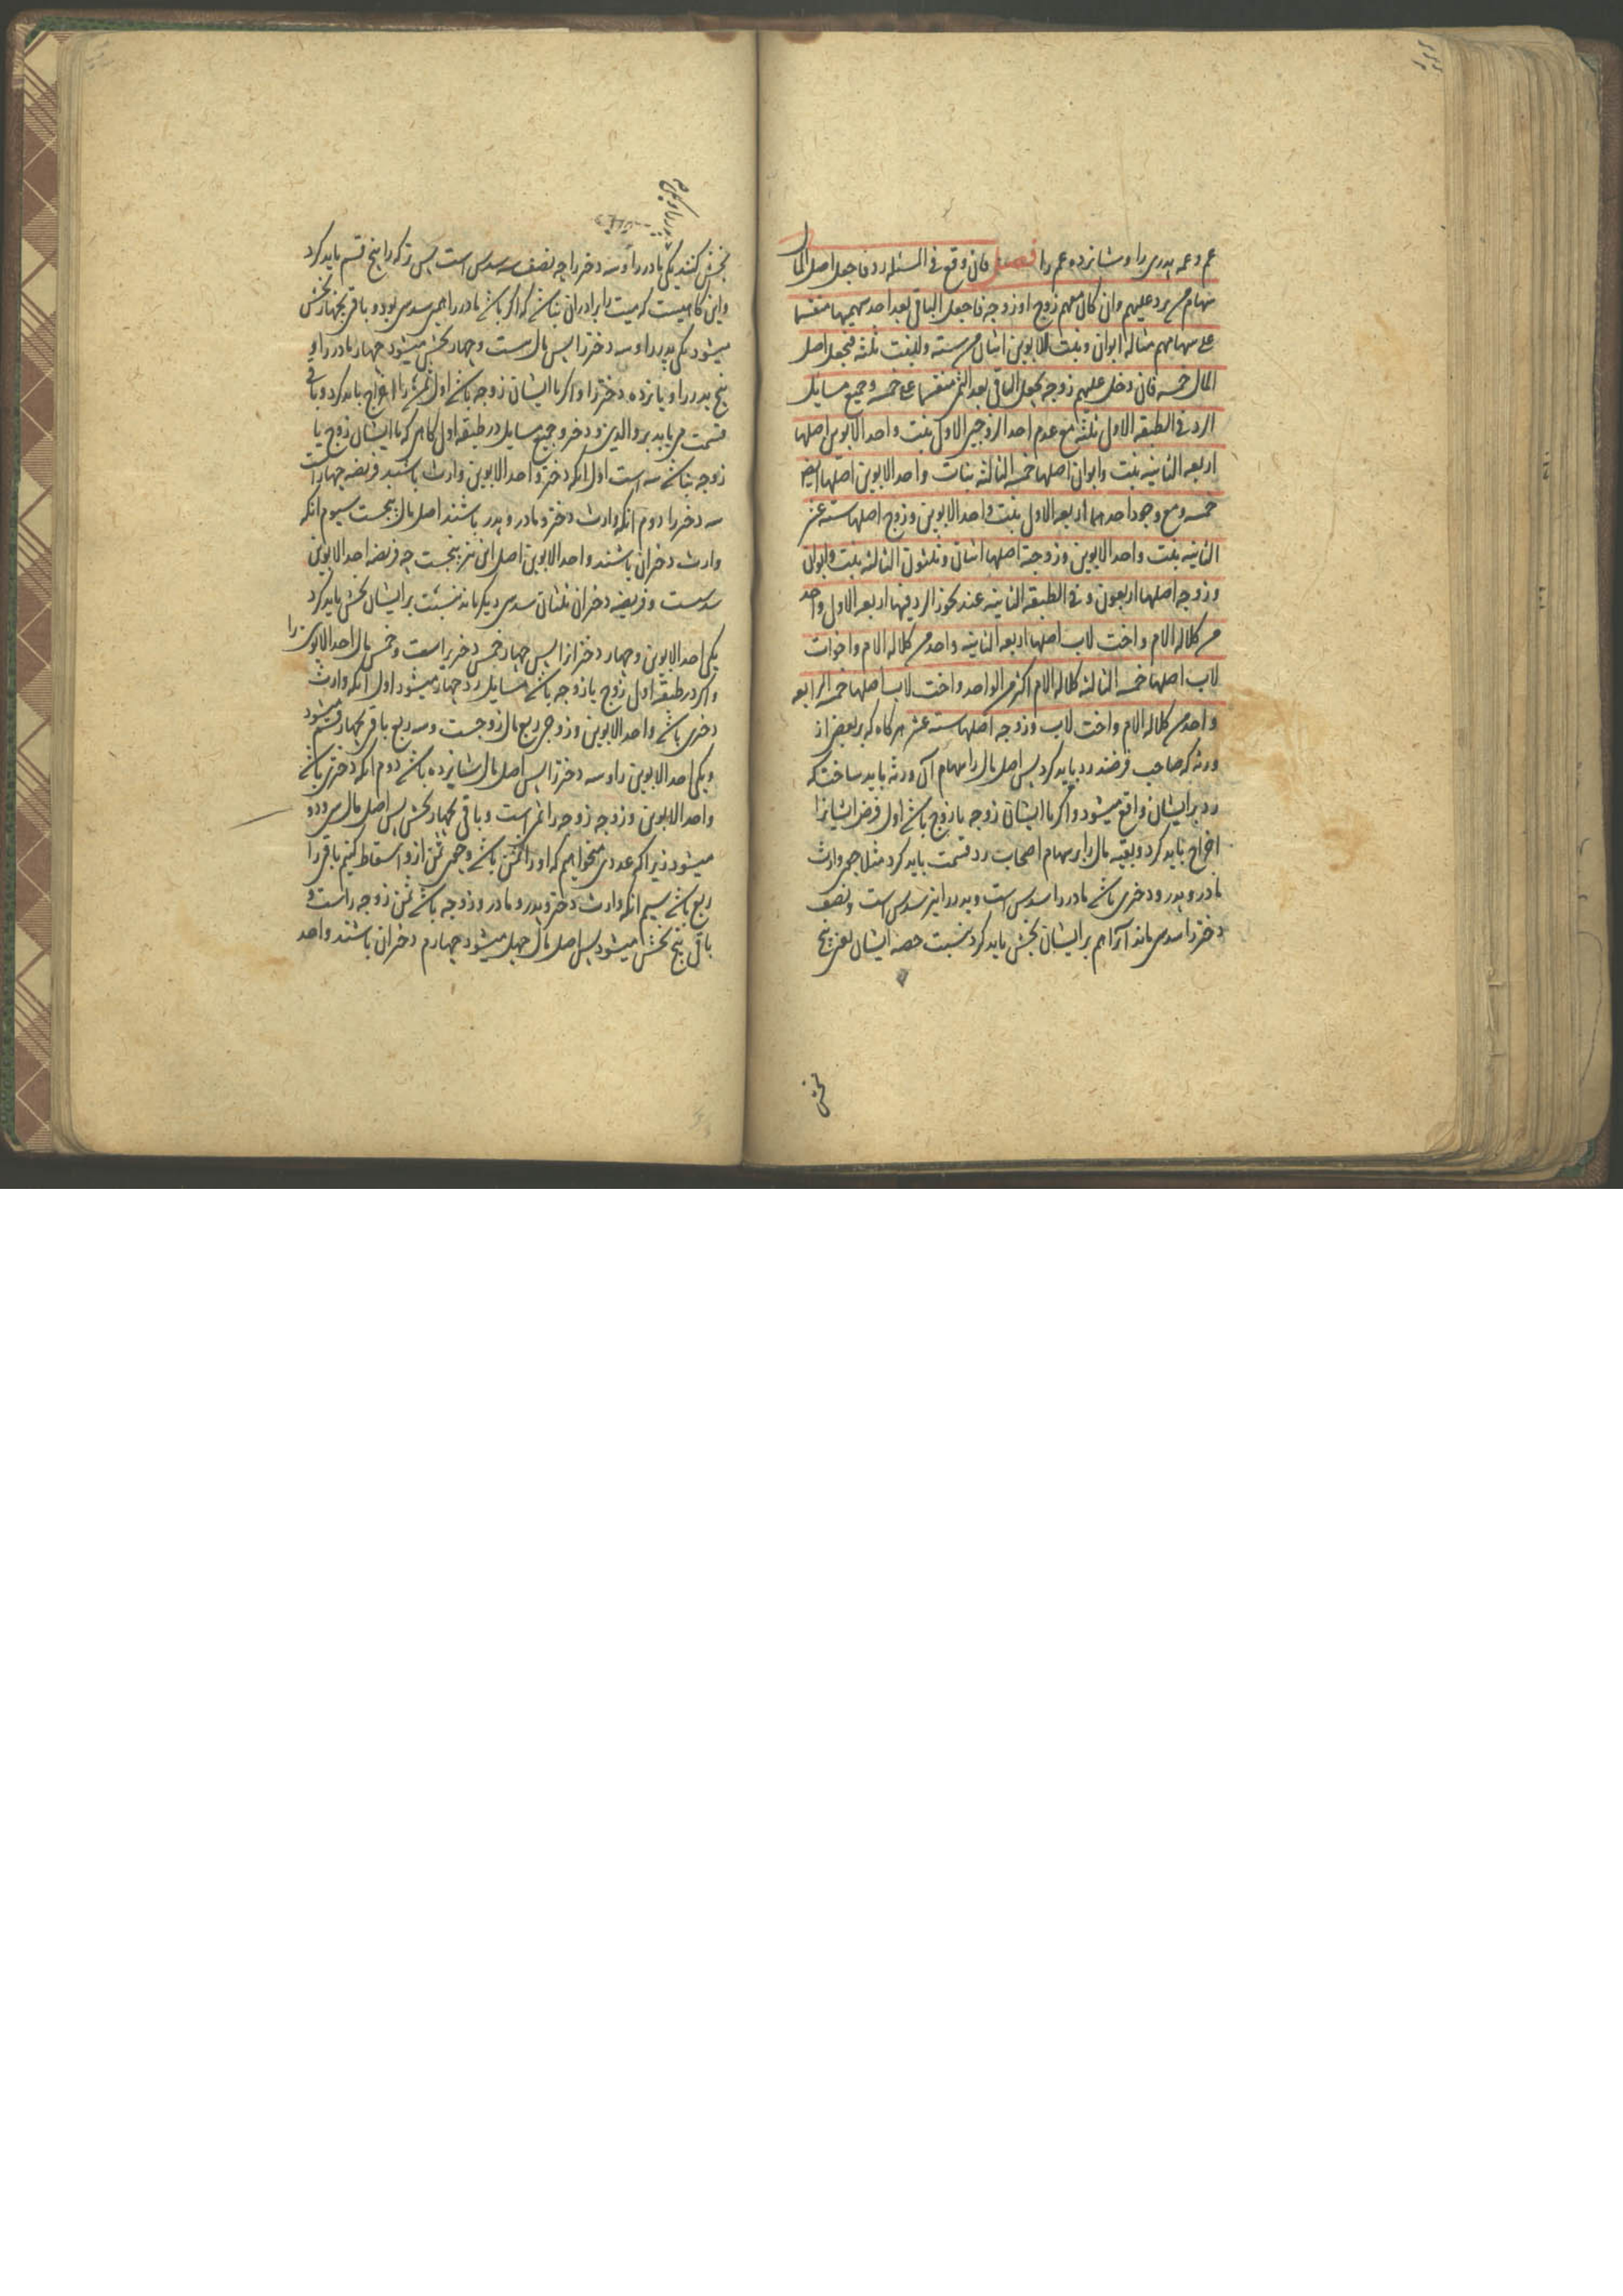 عم و عمه پدری را و شانزده عم را فصل فان وقع فی المسئله رد فاجعل اصل المال
سهام من یرد علیهم وان کان معهم زوج او زوجه فاجعل الباقی بعد احد سهمیهما منقسما
علی سهامهم مثاله ابوان و بنت للابوین اثنان من سته وللبنت ثلثه فیجعل اصل
المال خمسه فان دخل علیهم زوجه یجعل الباقی بعد الثمن منقسما علی خمسه وجمیع مسایل
الرد فی الطبقه الاولی ثلثه مع عدم احد الزوجین الاولی بنت واحد الابوین اصلها
اربعه الثانیه بنت وابوان اصلها خمسه الثالثه بنات واحد الابوین اصلها ایضا
خمسه ومع وجود احدهما اربعه الاولی بنت واحد الابوین وزوج اصلها سته عشر
الثانیه بنت واحد الابوین وزوجة اصلها اثنان وثلثون الثالثه بنت وابوان
وزوجه اصلها اربعون وفی الطبقه الثانیه عند مجوز الرد فیها اربعه الاولی واحد
من کلاله الام واخت لاب اصلها اربعه الثانیه واحد من کلاله الام واخوات
لاب اصلها خمسه الثالثه کلاله الام اکثر من الواحد واخت لاب اصلها خمسه الرابعه
واحد من کلاله الام واخت لاب وزوجه اصلها سته عشر هرکاه که بر بعض از
ورثه که صاحب فرضند رد باید کرد پس اصل مال را سهام آن ورثه باید ساخت که
رد بر ایشان واقع میشود و اکر با ایشان زوجه یا زوج باشد اول فرض ایشانرا
اخراج باید کرد و بقیه مال را بر سهام اصحاب رد قسمت باید کرد مثلا چون وارث
مادر و پدر و دختری باشد مادر را سدس است و پدر را نیز سدس است و نصف
دختر را سدسی ماند آنرا هم بر ایشان بخش باید کرد بنسبت حصه ایشان یعنی پنج
بخش
بخش کنند یکی مادر را و سه دختر را چه نصف سه سدس است پس ترکه را پنج قسم باید کرد
و این کاهیست که میت را برادران نباشد که اکر باشد مادر را همین سدس بود و باقی بچهار بخش
میشود یکی پدر را و سه دختر را پس مال بیست و چهار بخش میشود چهار مادر را و
پنج پدر را و پانزده دختر را و اکر با ایشان زوجه باشد اول ثمنش را اخراج باید کرد و باقی
قسمت می باید بر والدین و دختر و جمیع مسایل در طبقه اول کاهی که با ایشان زوج یا
زوجه نباشد سه است اول آنکه دختر و احد الابوین وارث باشند فریضه چهار است
سه دختر را دوم آنکه وارث دختر و مادر و پدر باشند اصل مال پنجست سیوم آنکه
وارث دختران باشند و احد الابوین اصل این نیز پنجست چه فریضه احد الابوین
سدست و فریضه دختران ثلثان سدسی دیکر ماند بنسبت بر ایشان بخش باید کرد
یکی احد الابوین و چهار دختر انرا پس چهار خمس دختر راست و خمس مال احد الابوین را
و اکر در طبقه اول زوج یا زوجه باشد مسایل رد چهار میشود اول آنکه وارث
دختری باشد و احد الابوین و زوجی ربع مال زوجست و سه ربع باقی بچهار قسم میشود
و یکی احد الابوین را و سه دختر را پس اصل مال شانزده باشد دوم آنکه دختری باشد
و احد الابوین و زوجه زوجه را ثمن است و باقی بچهار بخش پس اصل مال سی و دو
میشود زیرا که عددی میخواهیم که او را ثمن باشد و چون ثمن ازو اسقاط کنیم باقی را
ربع باشد سیم آنکه وارث دختر و پدر و مادر و زوجه باشد ثمن زوجه راست و
باقی پنج بخش میشود پس اصل مال چهل میشود چهارم دختران باشند و احد